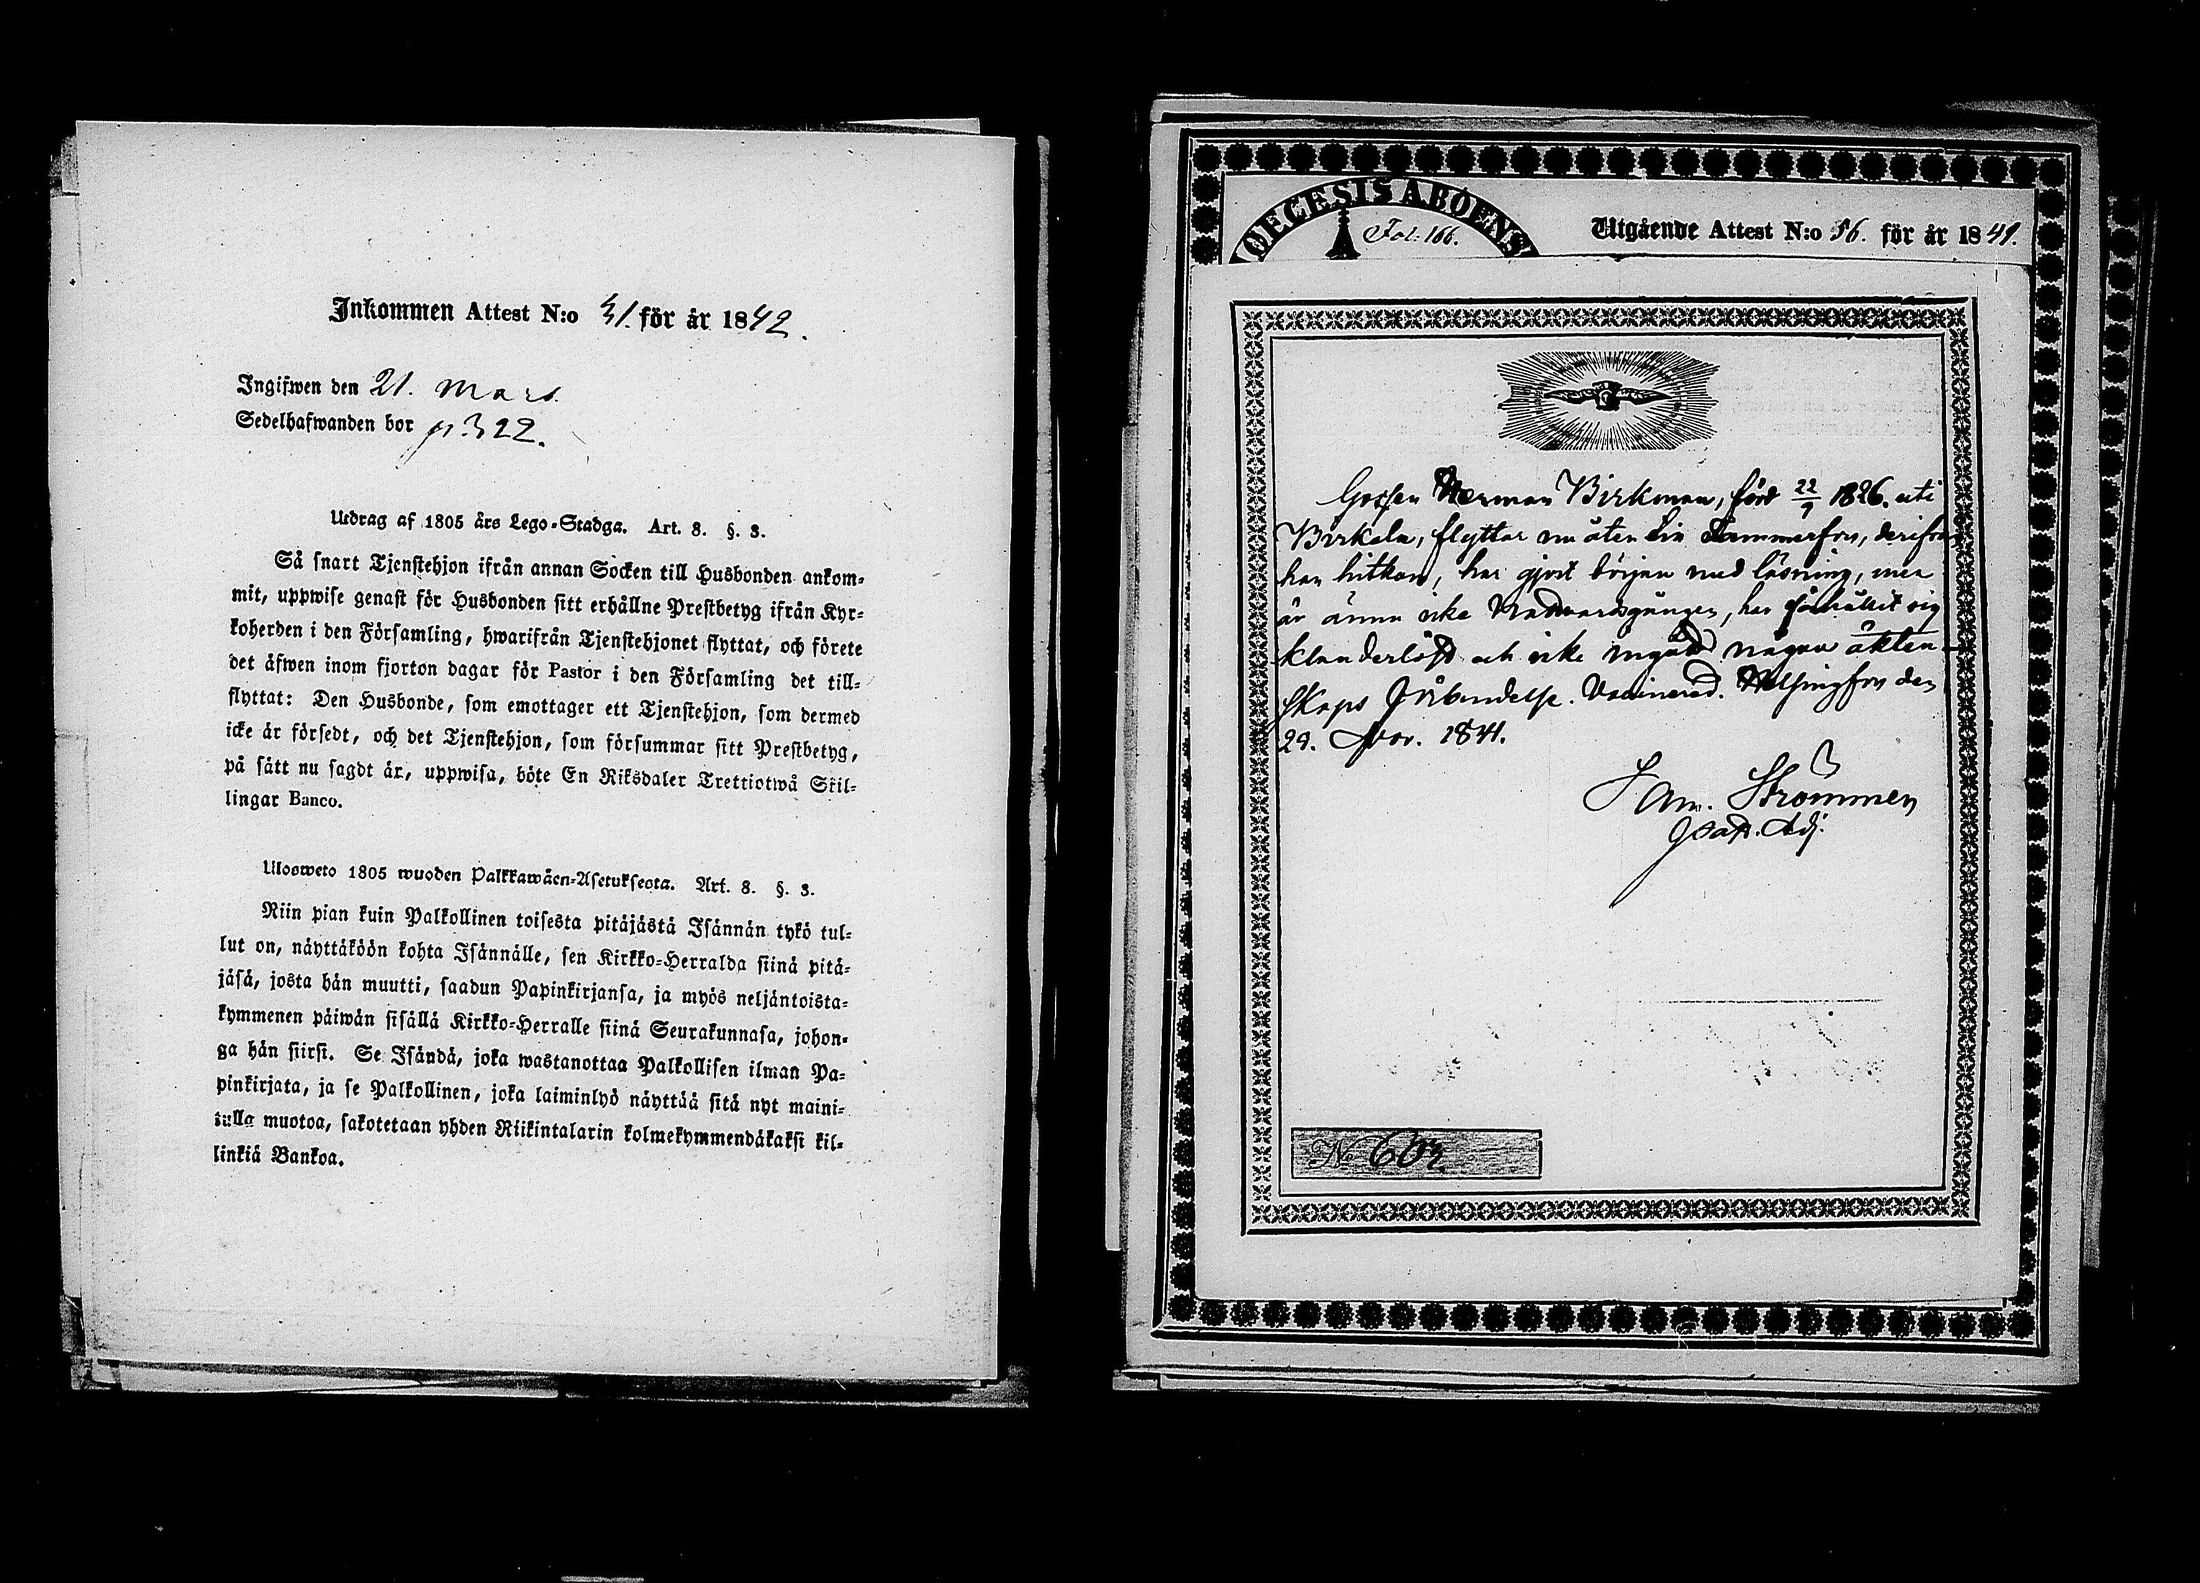 Inkommen Attest N:o 31. för år 1842.
Ingifwen den 21. Mars.
Sedelhafwanden bor p. 322.
Utdrag af 1805 års Lego-Stadga. Art. 8. §. 3.
Så snart Tjenstehjon ifrån annan Socken till Husbonden ankom-
mit, uppwise genast för Husbonden sitt erhållne Prestbetyg ifrån Kyr-
koherden i den Församling, hwarifrån Tjenstehjonet flyttat, och förete
det äfwen inom fjorton dagar för Pastor i den Församling det till-
flyttat: Den Husbonde, som emottager ett Tjenstehjon, som dermed
icke är försedt, och det Tjenstehjon, som försummar sitt Prestbetyg,
på sätt nu sagdt är, uppwisa, böte En Riksdaler Trettiotwå Skil-
lingar Banco.
Ulosweto 1805 wuoden Palkkawäen-Asetuksesta. Art. 8. §. 3.
Niin pian kuin Palkollinen toisesta pitäjästä Isännän tykö tul-
lut on, näyttäköön kohta Isännälle, sen Kirkko-Herralda siinä pitä-
jäsä, josta hän muutti, saadun Papinkirjansa, ja myös neljäntoista-
kymmenen päiwän sisällä Kirkko-Herralle siinä Seurakunnasa, johon-
ga hän siirsi. Se Isändä, joka wastanottaa Palkollisen ilman Pa-
pinkirjata, ja se Palkollinen, joka laiminlyö näyttää sitä nyt maini-
tulla muotoa, sakotetaan yhden Riikintalarin kolmekymmendäkaksi kil-
linkiä Bankoa.
DIŒCESIS ABOENS
Fol: 166.
Utgående Attest N:o 56. för år 1841.
Gossen Herman Birkman, född 22/9 1826. uti
Birkala, flyttar nu åter till Tammerfors, derifrån
han hitkom, har gjort början med läsning, men
är ännu icke Nattvardsgången, har förhållit sig
klanderlöst och icke ingått någon äkten-
skaps förbindelse. Vaccinerad. Helsingfors den
29. Nov. 1841.
Sam. Strömmer
Adj.
No 602